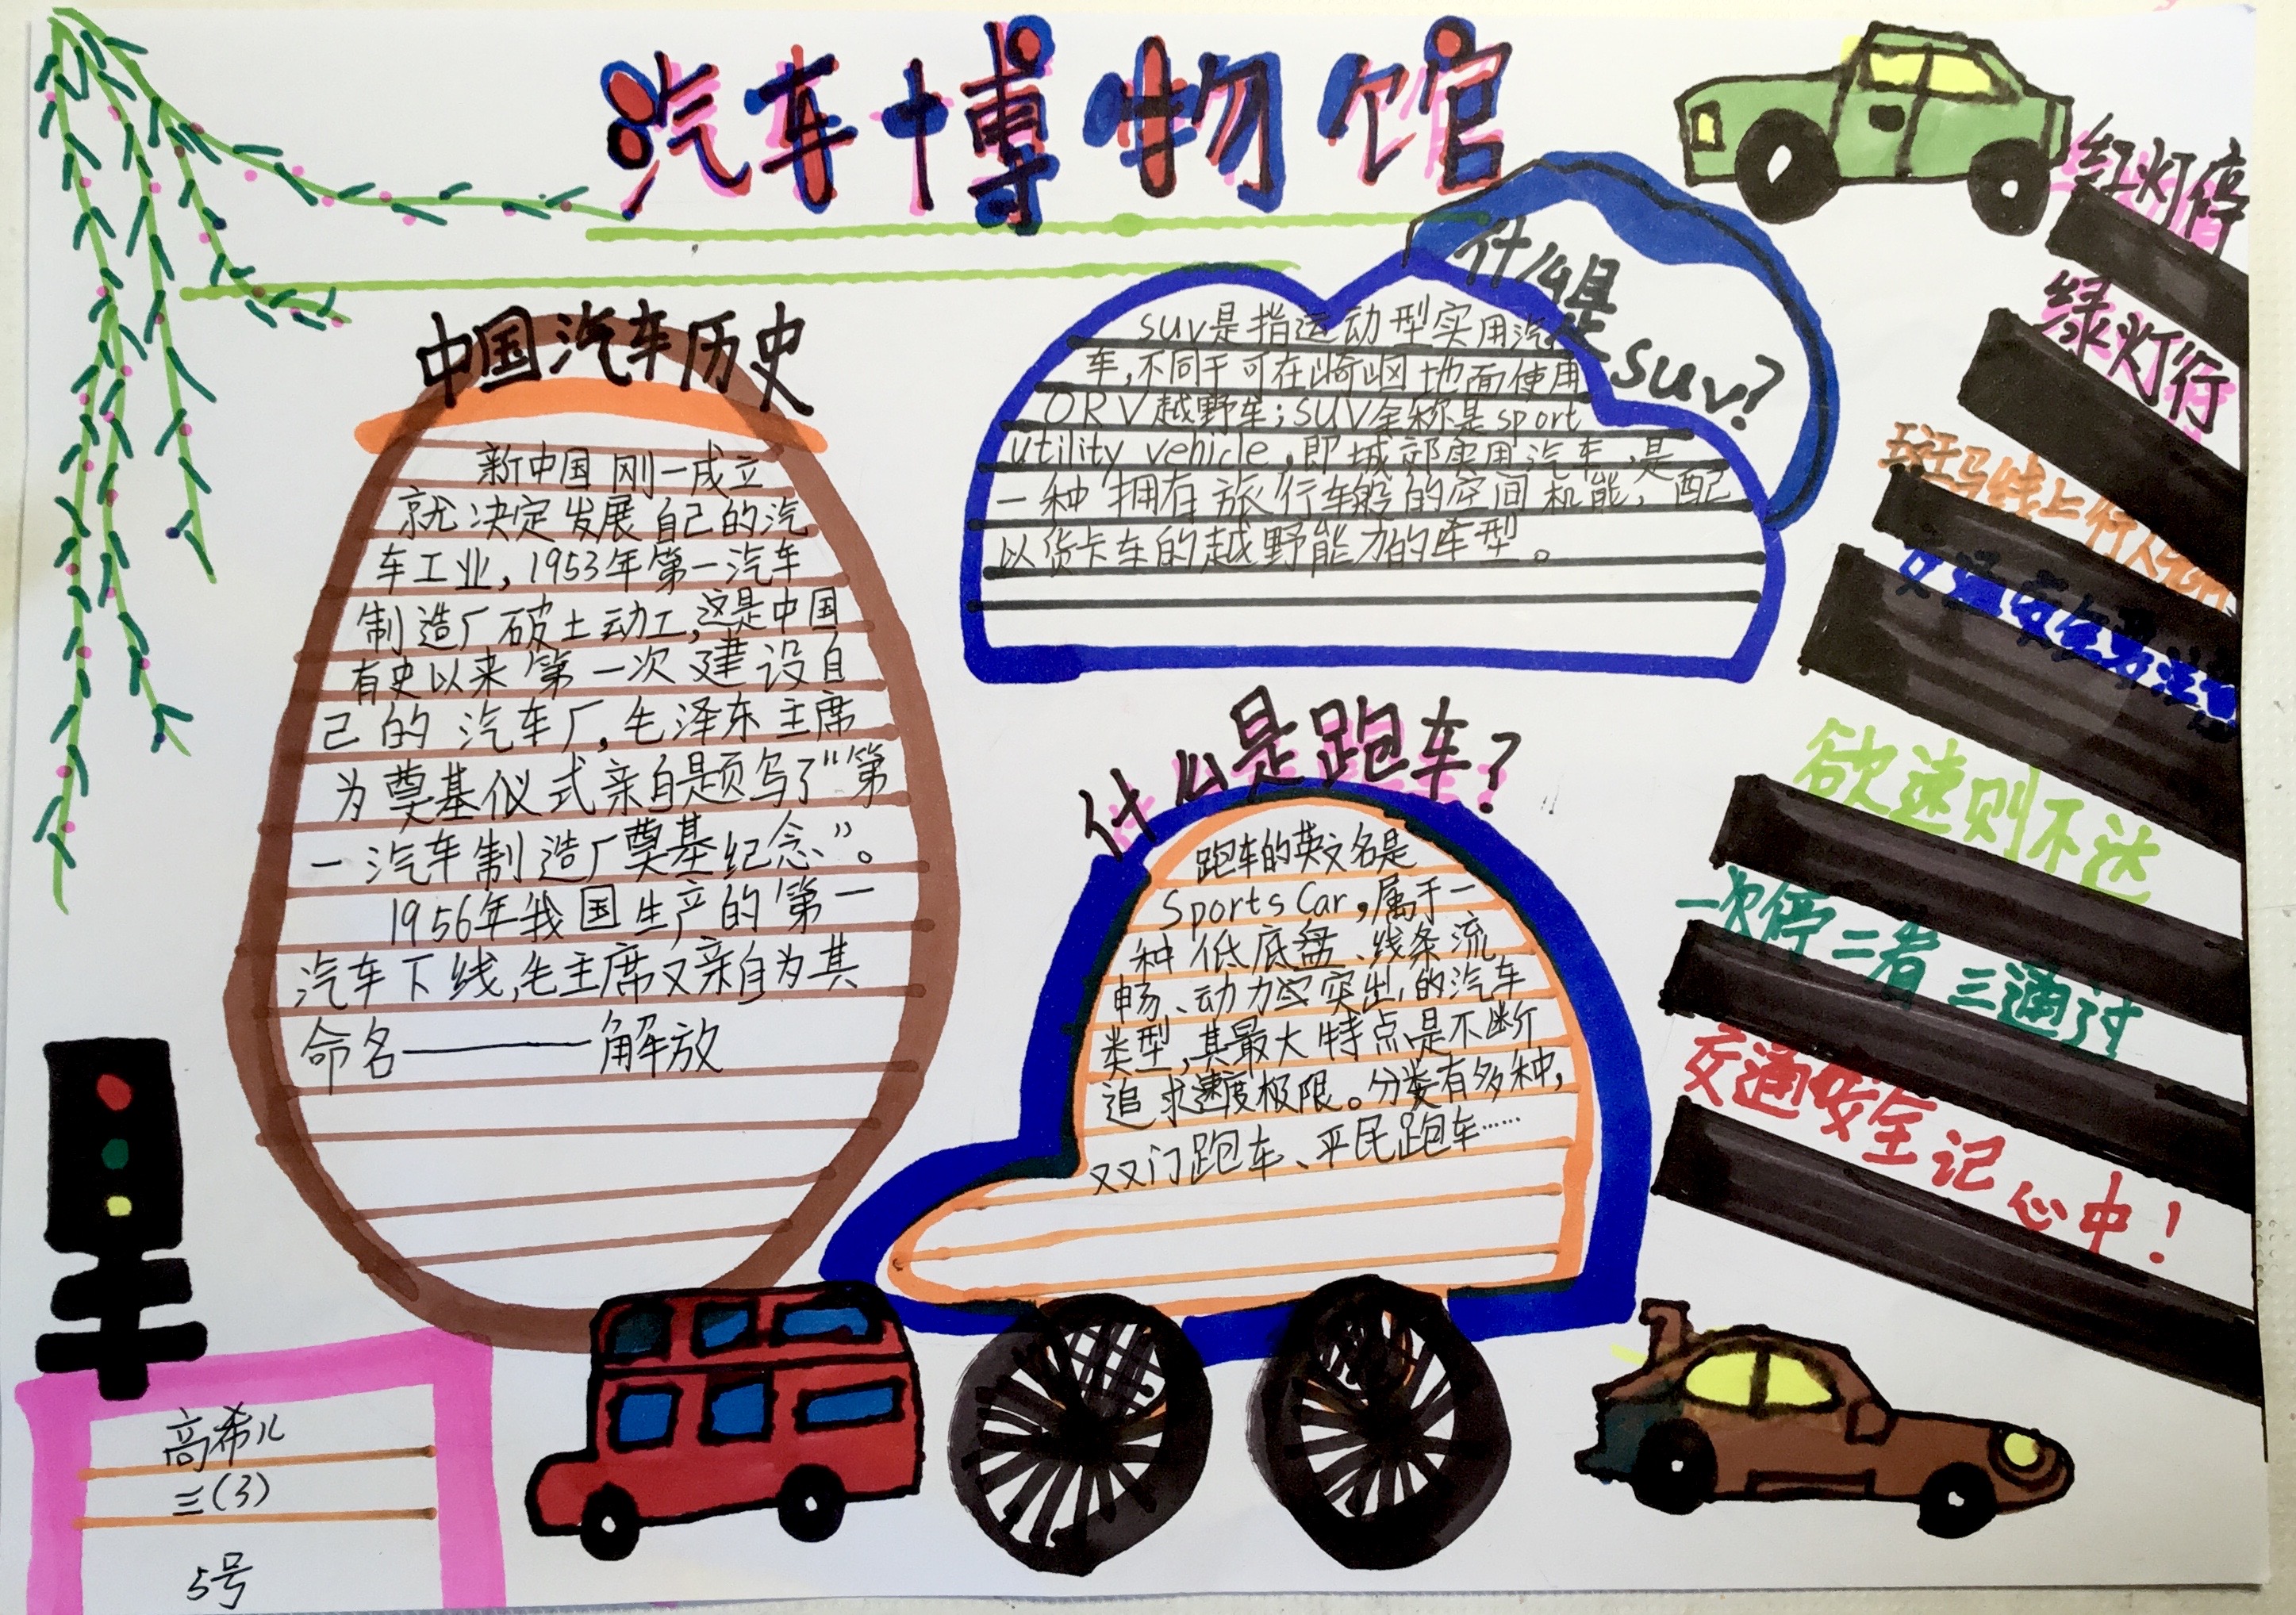 汽车博物馆
中国汽车历史
新中国刚一成立
就决定发展自己的汽
车工业，1953年第一汽车
制造厂破土动工，这是中国
有史以来第一次建设自
己的汽车厂，毛泽东主席
为奠基仪式亲自题写了“第
一汽车制造厂奠基纪念”。
1956年我国生产的第一
汽车下线，毛主席又亲自为其
命名——解放
什么是suv？
suv是指运动型实用汽
车，不同于可在崎岖地面使用
ORV越野车；SUV全称是sport
utility vehicle，即城郊实用汽车，是
一种拥有旅行车般的空间机能，配
以货卡车的越野能力的车型。
什么是跑车？
跑车的英文名是
Sports Car，属于一
种低底盘、线条流
畅、动力突出的汽车
类型，其最大特点是不断
追求速度极限。分类有多种，
双门跑车、平民跑车……
红灯停
绿灯行
斑马线上行人
交通安全
欲速则不达
一次停二看三通过
交通安全记心中！
高希儿
三(3)
5号